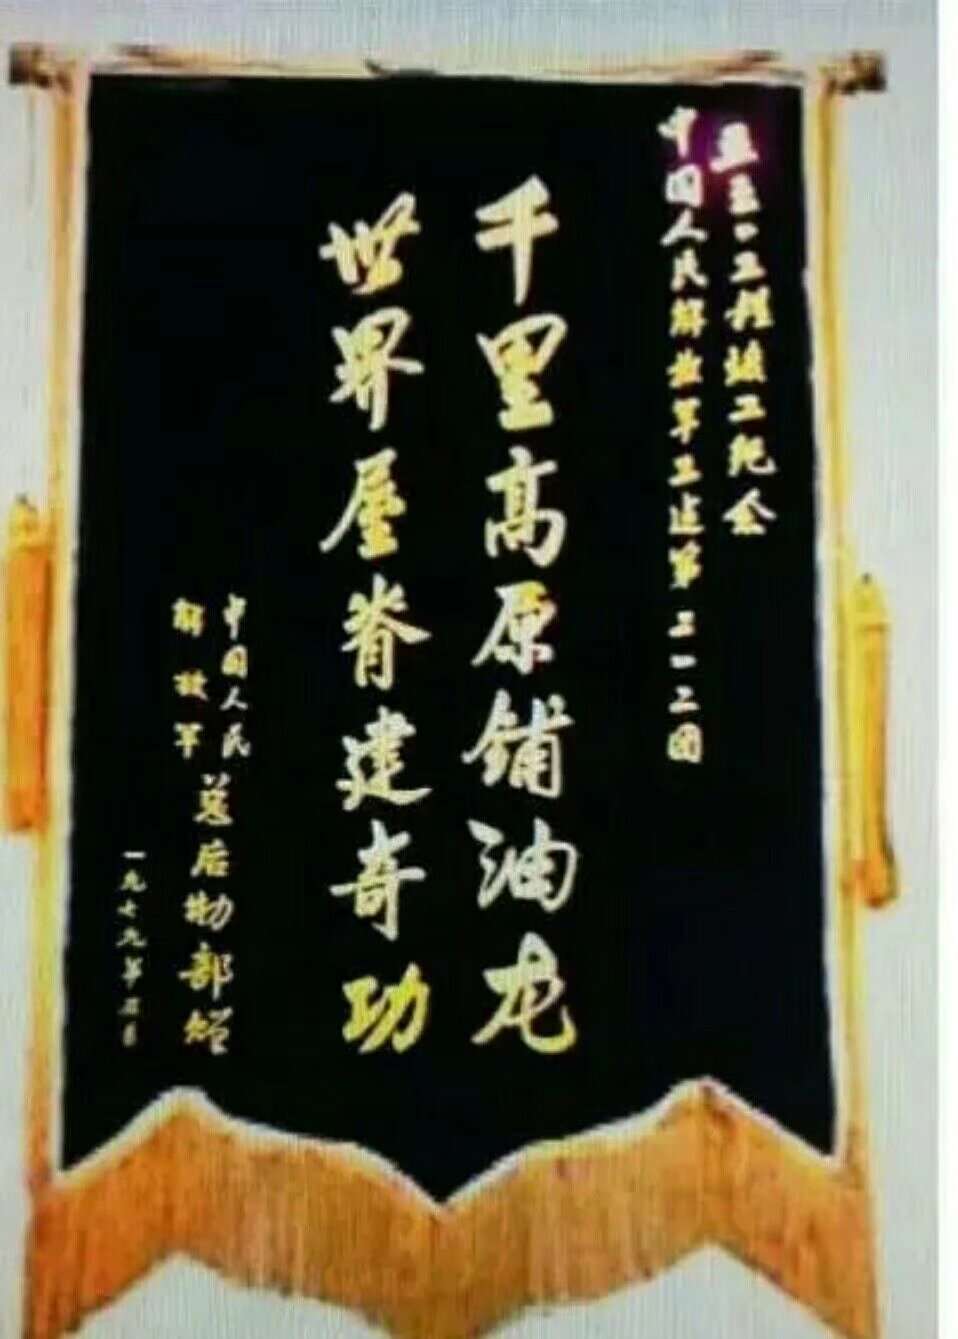 工程竣工纪念
中国人民解放军工建第二一二团
千里高原铺油龙
世界屋脊建奇功
中国人民
解放军
总后勤部赠
一九七九年